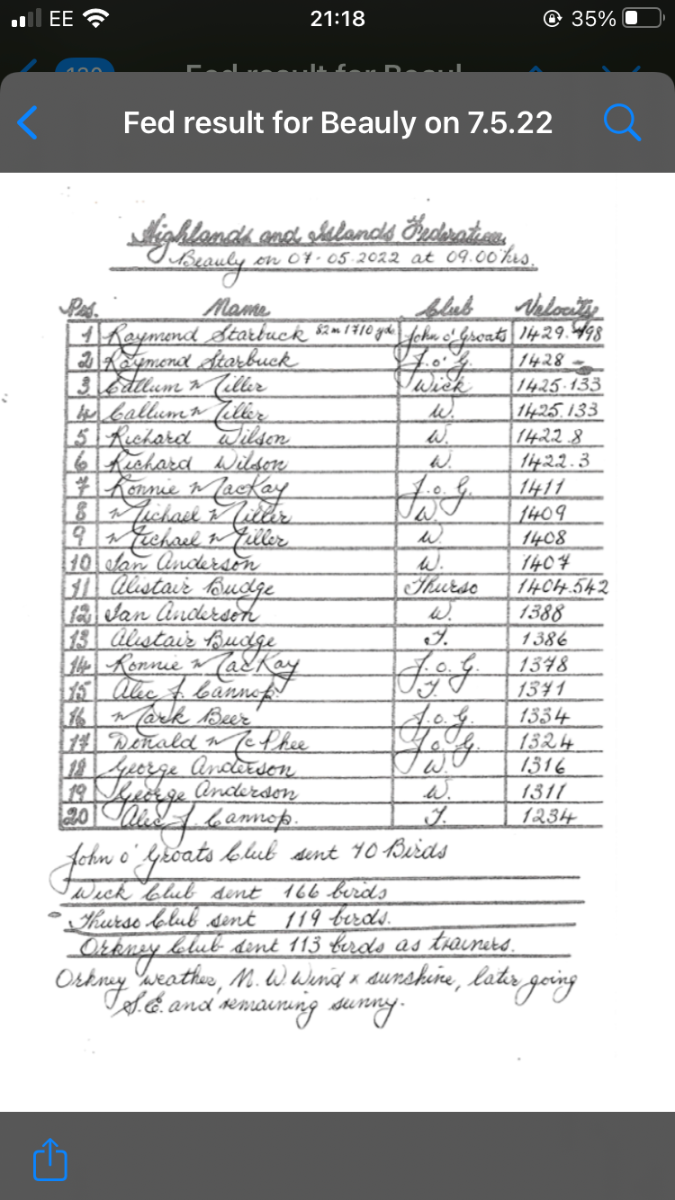 EE 21:18 35%
Fed result for Beauly on 7.5.22
Highlands and Islands Federation
Beauly on 07-05-2022 at 09.00 hrs.
Pos. Name Club Velocity
1 Raymond Starbuck 82m 1710 yds John o' Groats 1429.498
2 Raymond Starbuck J.o'.G. 1428
3 Callum Miller Wick 1425.133
4 Callum Miller W. 1425.133
5 Richard Wilson W. 1422.8
6 Richard Wilson W. 1422.3
7 Ronnie MacKay J.o.G. 1411
8 Michael Miller W. 1409
9 Michael Miller W. 1408
10 Ian Anderson W. 1407
11 Alistair Budge Thurso 1404.542
12 Ian Anderson W. 1388
13 Alistair Budge T. 1386
14 Ronnie MacKay J.o.G. 1378
15 Alec J. Cannop T. 1371
16 Mark Beer J.o.G. 1334
17 Donald McPhee J.o.G. 1324
18 George Anderson W. 1316
19 George Anderson W. 1311
20 Alec J. Cannop. T. 1234
John o' Groats Club sent 70 Birds
Wick Club sent 166 birds
Thurso Club sent 119 birds.
Orkney Club sent 113 birds as trainers.
Orkney weather, N.W Wind x sunshine, later going
S.E. and remaining sunny.